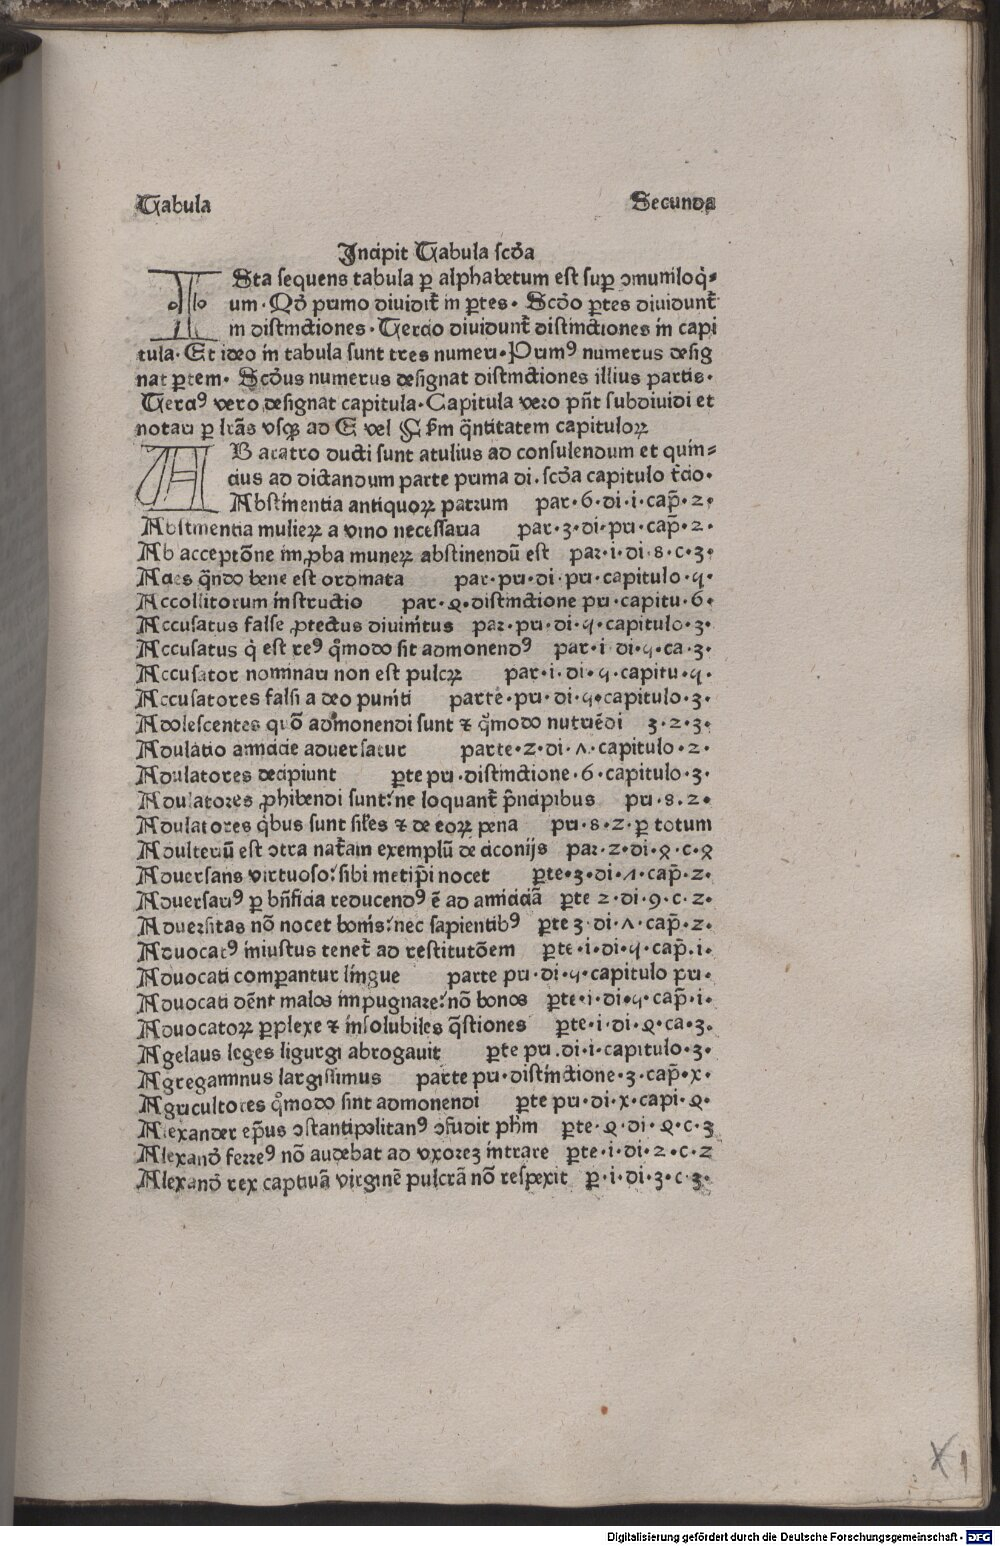 Tabula Secunda
Incipit Tabula scďa
ISta sequens tabula ꝑ alphabetum est suꝑ ꝯmuniloq̇⸗
um · Qď primo diuidit̃ in ꝑtes · Scďo ꝑtes diuidunt̃
in distinctiones · Tercio diuidunt̃ distinctiones in capi
tula · Et ideo in tabula sunt tres numeri · Primꝰ numerus desig
nat ꝑtem · Scďus numerus designat distinctiones illius partis ·
Terciꝰ vero designat capitula · Capitula vero pñt subdiuidi et
notari ꝑ lr̃as vsqꝫ ad E vel F ẜm q̃ntitatem capituloꝝ
AB aratro ducti sunt atulius ad consulendum et quin⸗
cius ad dictandum parte prima di . scďa capitulo t̃cio ·
Abstinentia antiquoꝝ patrum par · 6 · di · i · cap̃ · 2 ·
Abstinentia mulieꝝ a vino necessaria par · 3 · di · pri · cap̃ · 2 ·
Ab acceptõne imꝓba muneꝝ abstinendũ est par · i · di · 8 · c · 3 ·
Acies q̃ndo bene est ordinata par · pri · di · pri · capitulo · ꝗ ·
Accolitorum instructio par · ꝙ · distinctione pri · capitu · 6 ·
Accusatus false ꝓtectus diuinitus par · pri · di · ꝗ · capitulo · 3 ·
Accusatus q̇ est reꝰ q̊modo sit admonendꝰ par · i · di · ꝗ · ca · 3 ·
Accusator nominari non est pulcꝝ par · i · di · ꝗ · capitu · ꝗ ·
Accusatores falsi a deo puniti parte · pri · di · ꝗ · capitulo · 3 ·
Adolescentes quõ admonendi sunt ⁊ q̊modo nutriẽdi 3 · 2 · 3 ·
Adulatio amicicie aduersatur parte · 2 · di · ꞈ · capitulo · 2 ·
Adulatores decipiunt ꝑte pri · distinctione · 6 · capitulo · 3 ·
Adulatores ꝓhibendi sunt: ne loquant̃ p̃ncipibus pri · 8 · 2 ·
Adulatores q̇bus sunt siƚes ⁊ de eoꝝ pena pri · 8 · 2 · ꝑ totum
Adulteriũ est ꝯtra nat̃am exemplũ de ciconijs par · 2 · di · ꝙ · c · ꝙ
Aduersans virtuoso: sibi metip̃i nocet ꝑte · 3 · di · ꞈ · cap̃ · 2 ·
Aduersariꝰ ꝑ bñficia reducendꝰ ẽ ad amiciciã ꝑte 2 · di · 9 · c · 2 ·
Aduersitas nõ nocet bonis: nec sapientibꝰ ꝑte 3 · di · ꞈ · cap̃ · 2 ·
Aduocatꝰ iniustus tenet̃ ad restitutõem ꝑte · i · di · ꝗ · cap̃ · i ·
Aduocati comparantur lingue parte pri · di · ꝗ · capitulo pri ·
Aduocati dẽnt malos impugnare: nõ bonos ꝑte · i · di · ꝗ · cap̃ · i ·
Aduocatoꝝ ꝑplexe ⁊ insolubiles q̃stiones ꝑte · i · di · ꝙ · ca · 3 ·
Agelaus leges ligurgi abrogauit ꝑte pri . di · i · capitulo · 3 ·
Agregaminus largissimus parte pri · distinctione · 3 · cap̃ · x ·
Agricultores q̊modo sint admonendi ꝑte pri · di · x · capi · ꝙ ·
Alexander ep̃us ꝯstantipolitanꝰ ꝯfudit ph̃m ꝑte · ꝙ · di · ꝙ · c · 3
Alexanď ferreꝰ nõ audebat ad vxoreꝫ intrare ꝑte · i · di · 2 · c · 2
Alexanď rex captiuã virginẽ pulcrã nõ respexit ꝑ · i · di · 3 · c · 3 ·
X 1
Digitalisierung gefördert durch die Deutsche Forschungsgemeinschaft - DFG